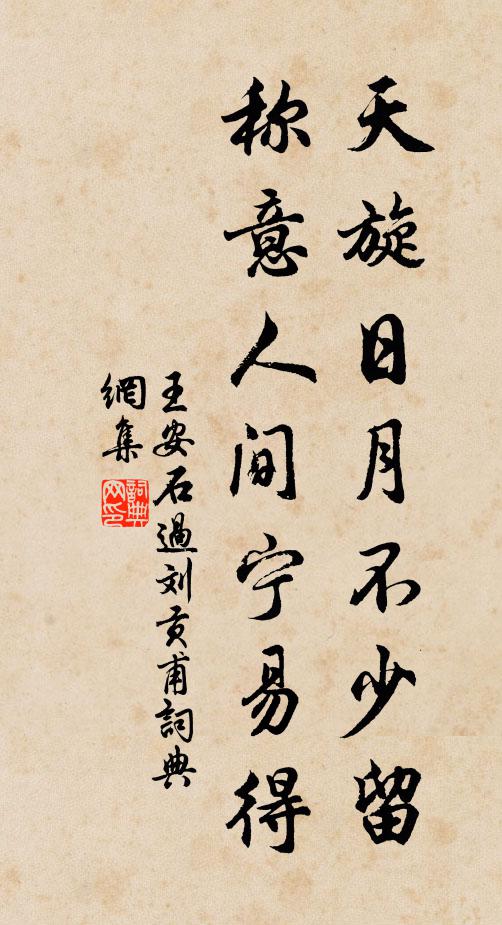 天旋日月不少留
称意人间宁易得
王安石過刘贡甫詞典
網集
詞典
网印